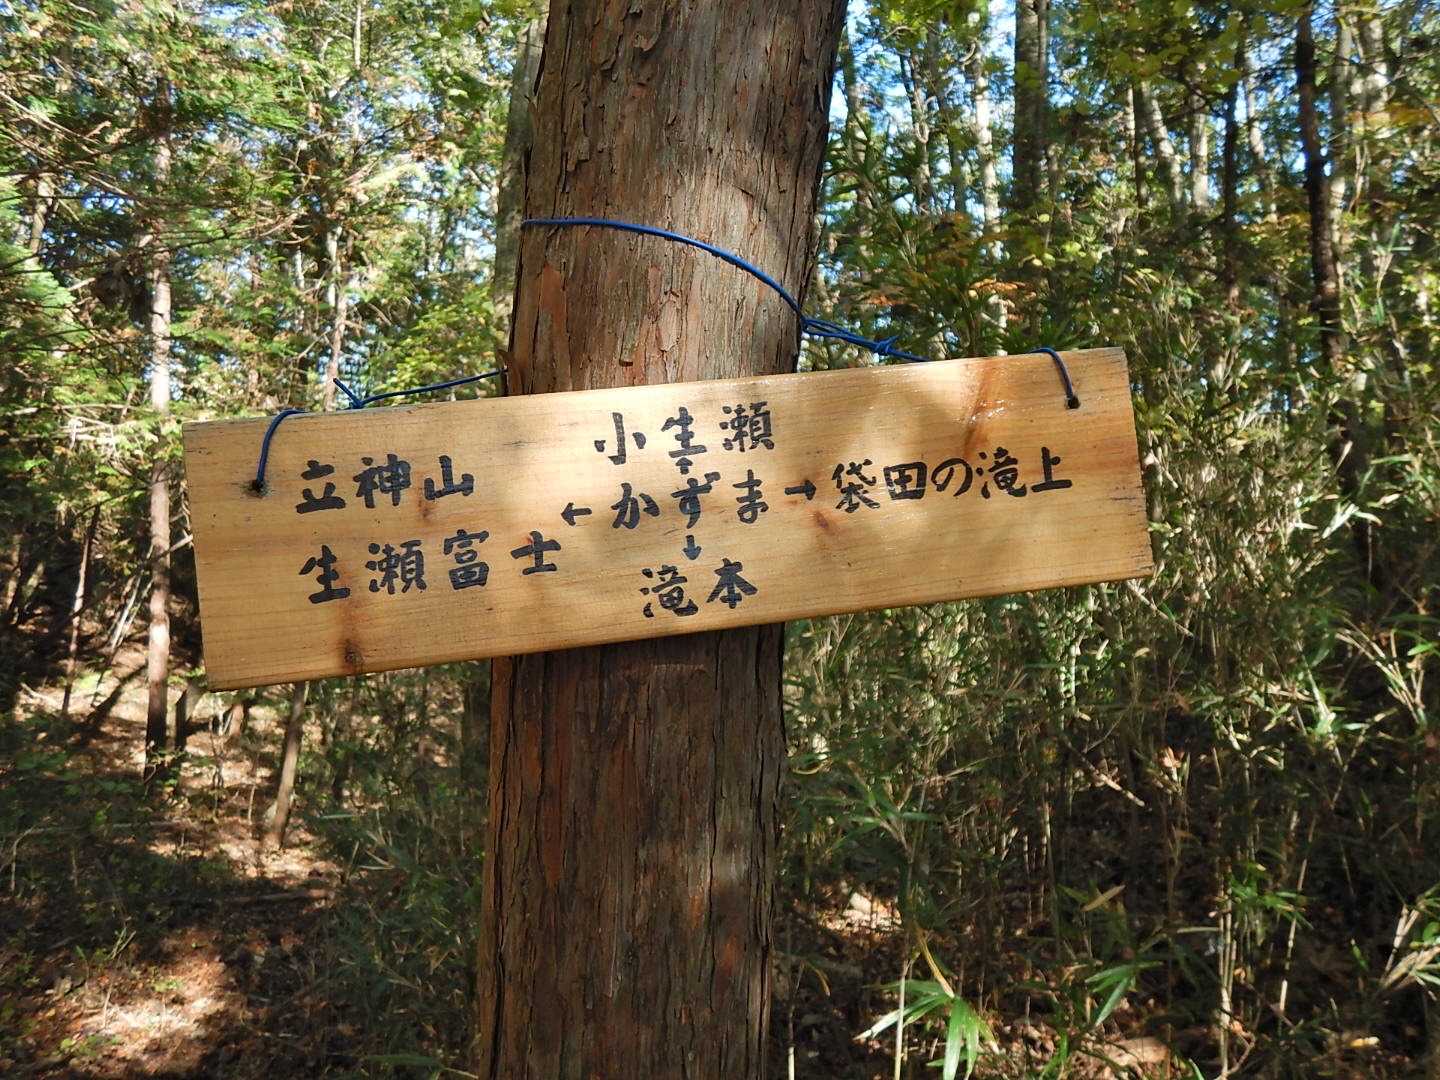 小生瀬
↑
立神山 ← かずま → 袋田の滝上
生瀬富士
↓
滝本